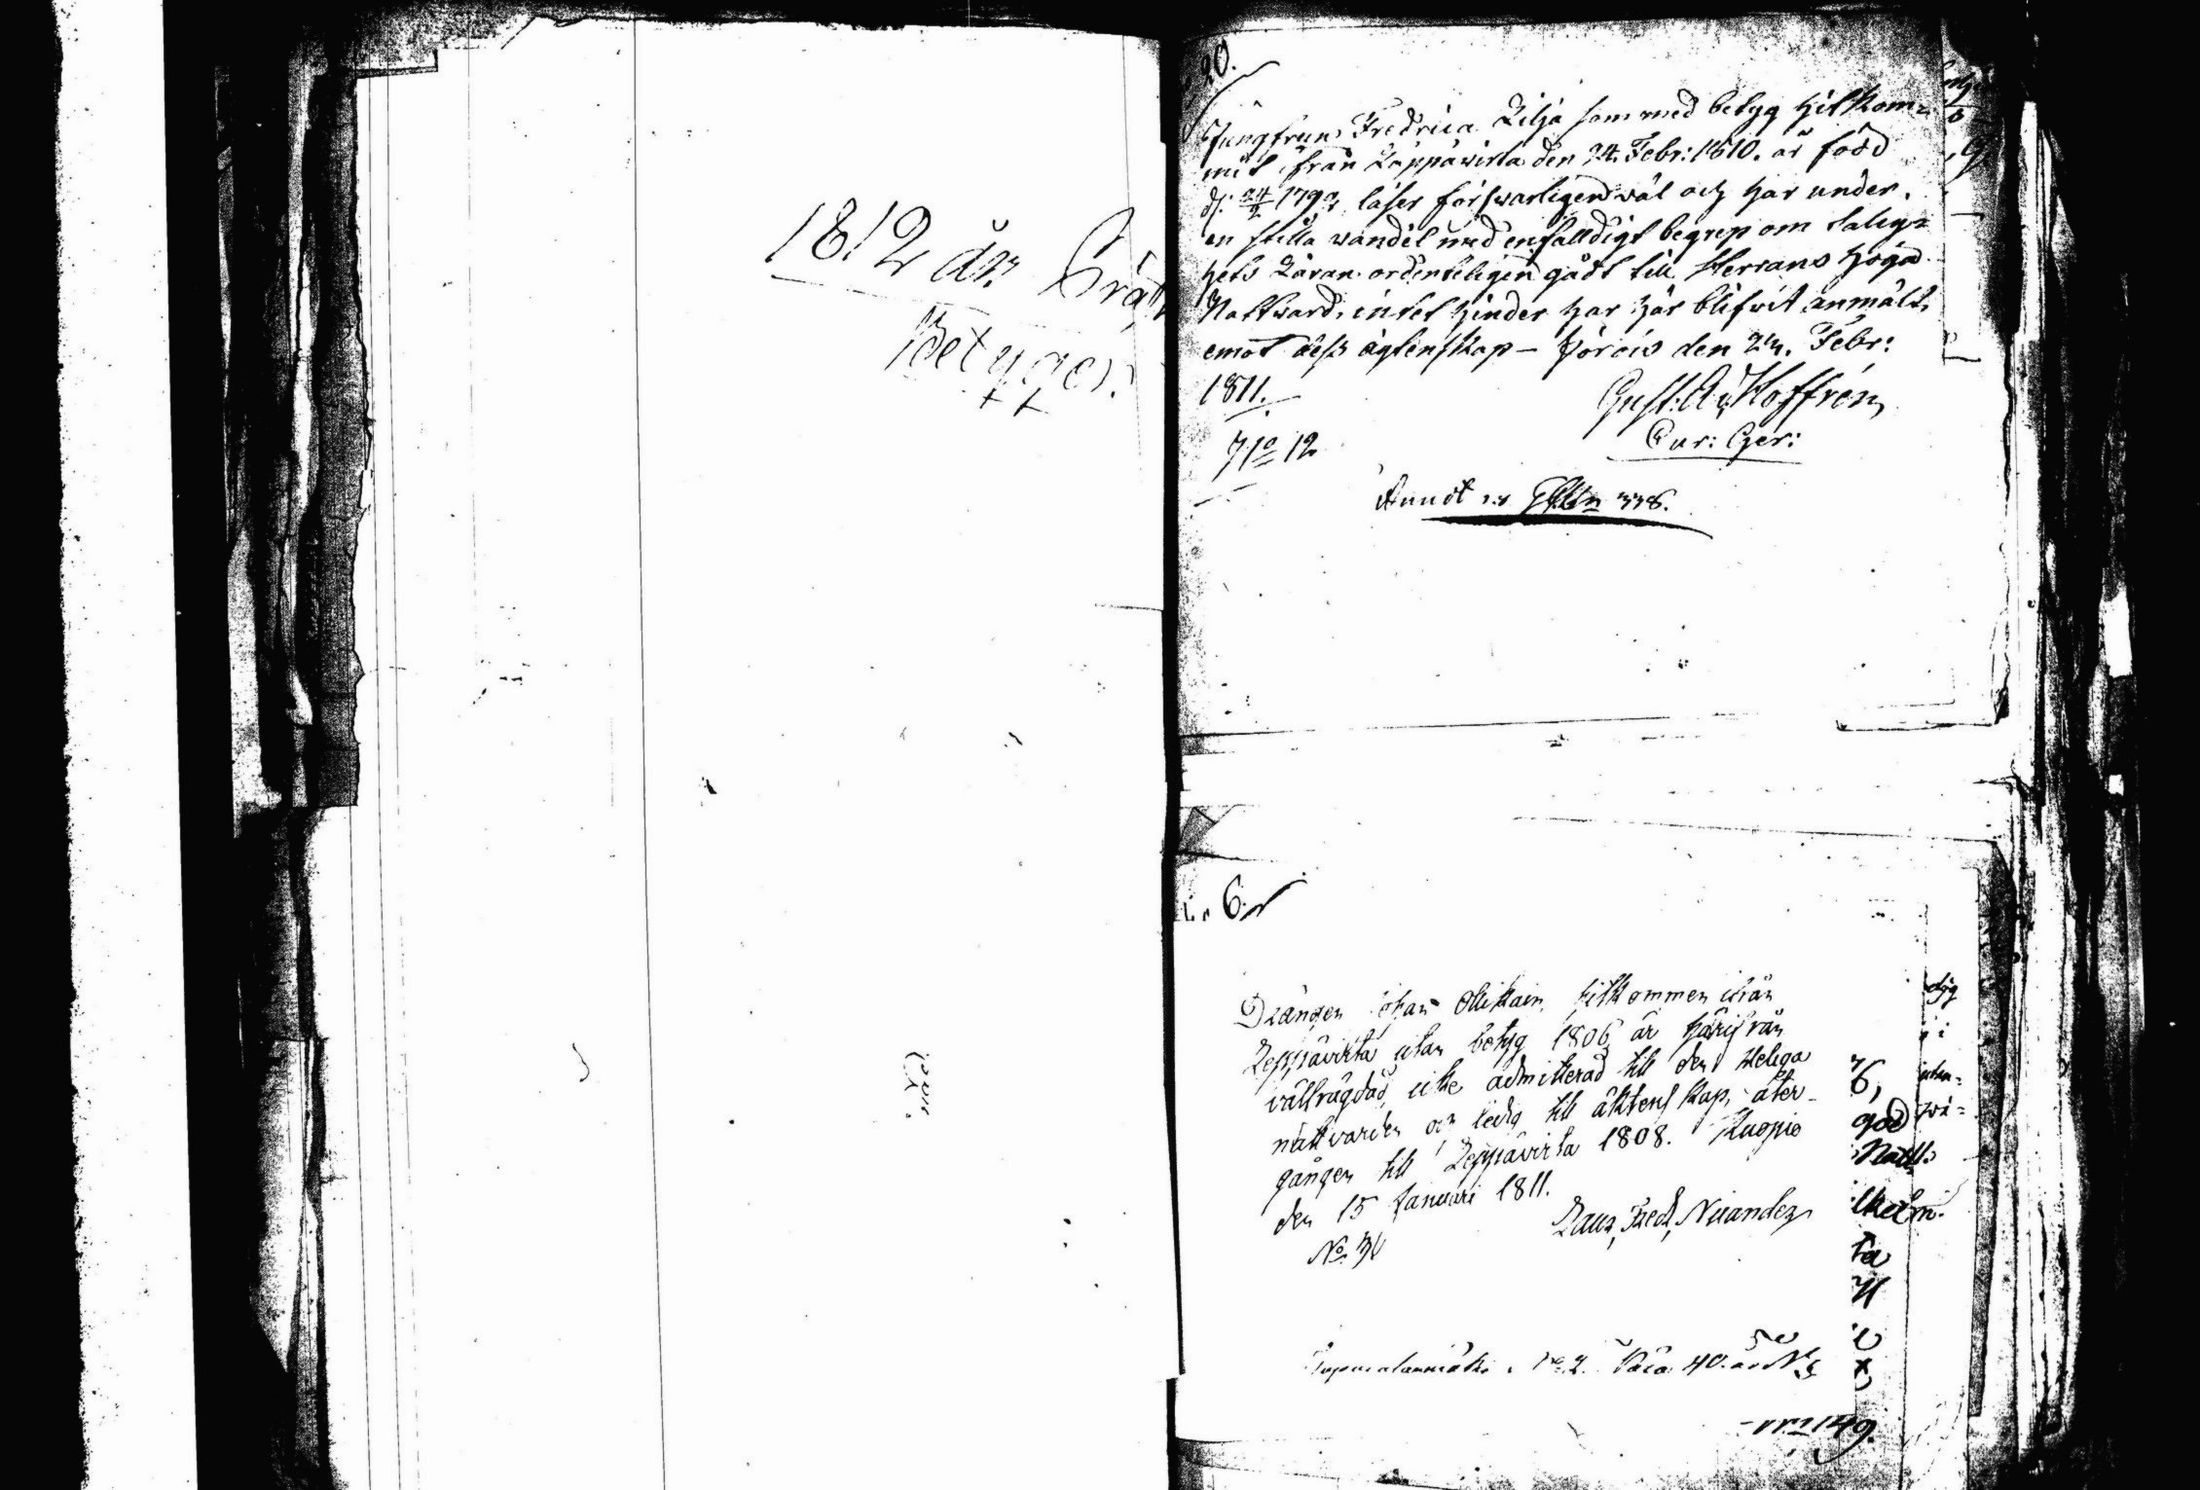 1812 års
Betyger.
20.
Jungfrun Fredrica Lilja som med betyg hitkom-
mit ifrån Läppäwirta den 24. Febr: 1810. är född
d. 24/2 1792, läser förswarligen wäl och har under
en stilla wandel med enfalldigt begrep om Salig-
hets Läran ordenteligen gådt till Herrans höga
Nattward, intet hinder har här blifwit anmält
emot dess ägtenskap – Jörois den 24. Febr:
1811.
Gust: Ad: Hoffrén
Cur: Ger:
71 12
338.
6.
Drängen Johan Ollikain, hitkommen ifrån
Leppävirta utan betyg 1806, är härifrån
vällfrägdad, icke admitterad till den Heliga
nattvarden och ledig till äktenskap, åter-
gången till Leppävirta 1808. Kuopio
den 15 Januari 1811.
Laur, Fred, Nuander
No 31
No 2. 40. år
149.